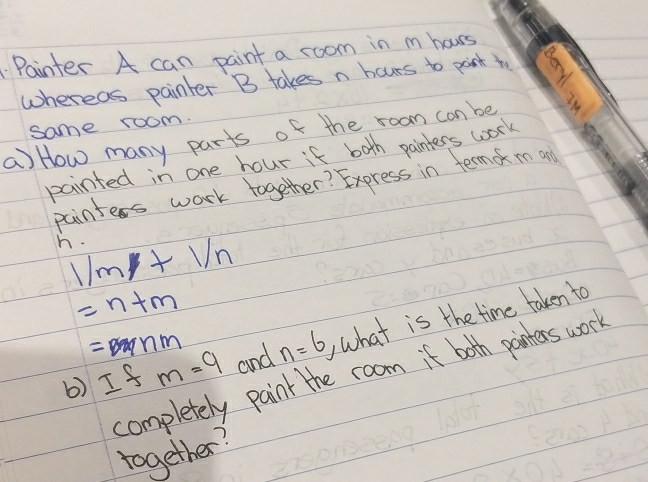 Painter A can paint a room in m hours
whereas painter B takes n hours to paint the
same room.
a) How many parts of the room can be
painted in one hour if both painters work
painters work together? Express in term of m and
n.
1/m + 1/n
= n+m
= nm
b) If m=9 and n=6, what is the time taken to
completely paint the room if both painters work
together?
Beryl JM